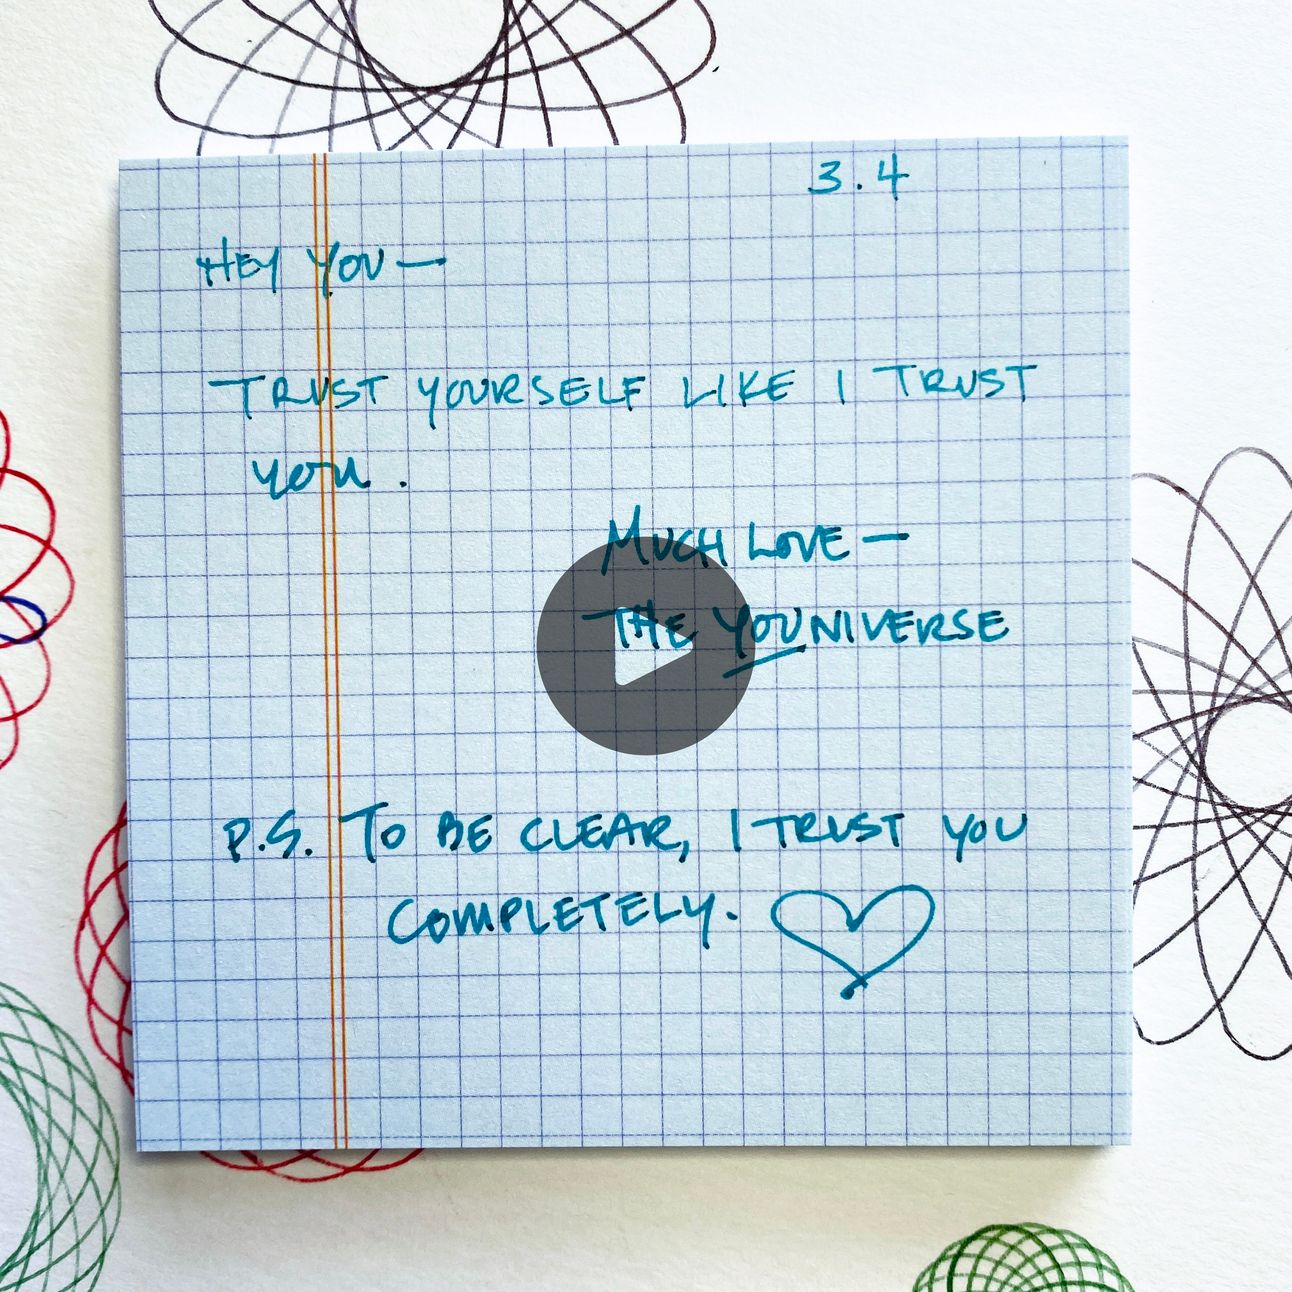 3.4
HEY YOU —
TRUST YOURSELF LIKE I TRUST
YOU.
MUCH LOVE —
THE YOUNIVERSE
P.S. TO BE CLEAR, I TRUST YOU
COMPLETELY.